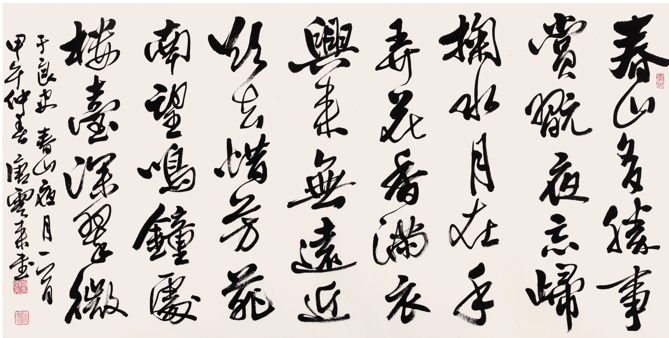 春山多勝事
賞翫夜忘歸
掬水月在手
弄花香滿衣
興來無遠近
欲去惜芳菲
南望鳴鐘處
樓臺深翠微
于良史 春山夜月 一首
甲午仲春 唐雲來書